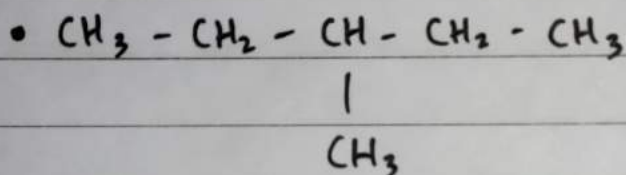 • CH₃ - CH₂ - CH - CH₂ - CH₃
|
CH₃